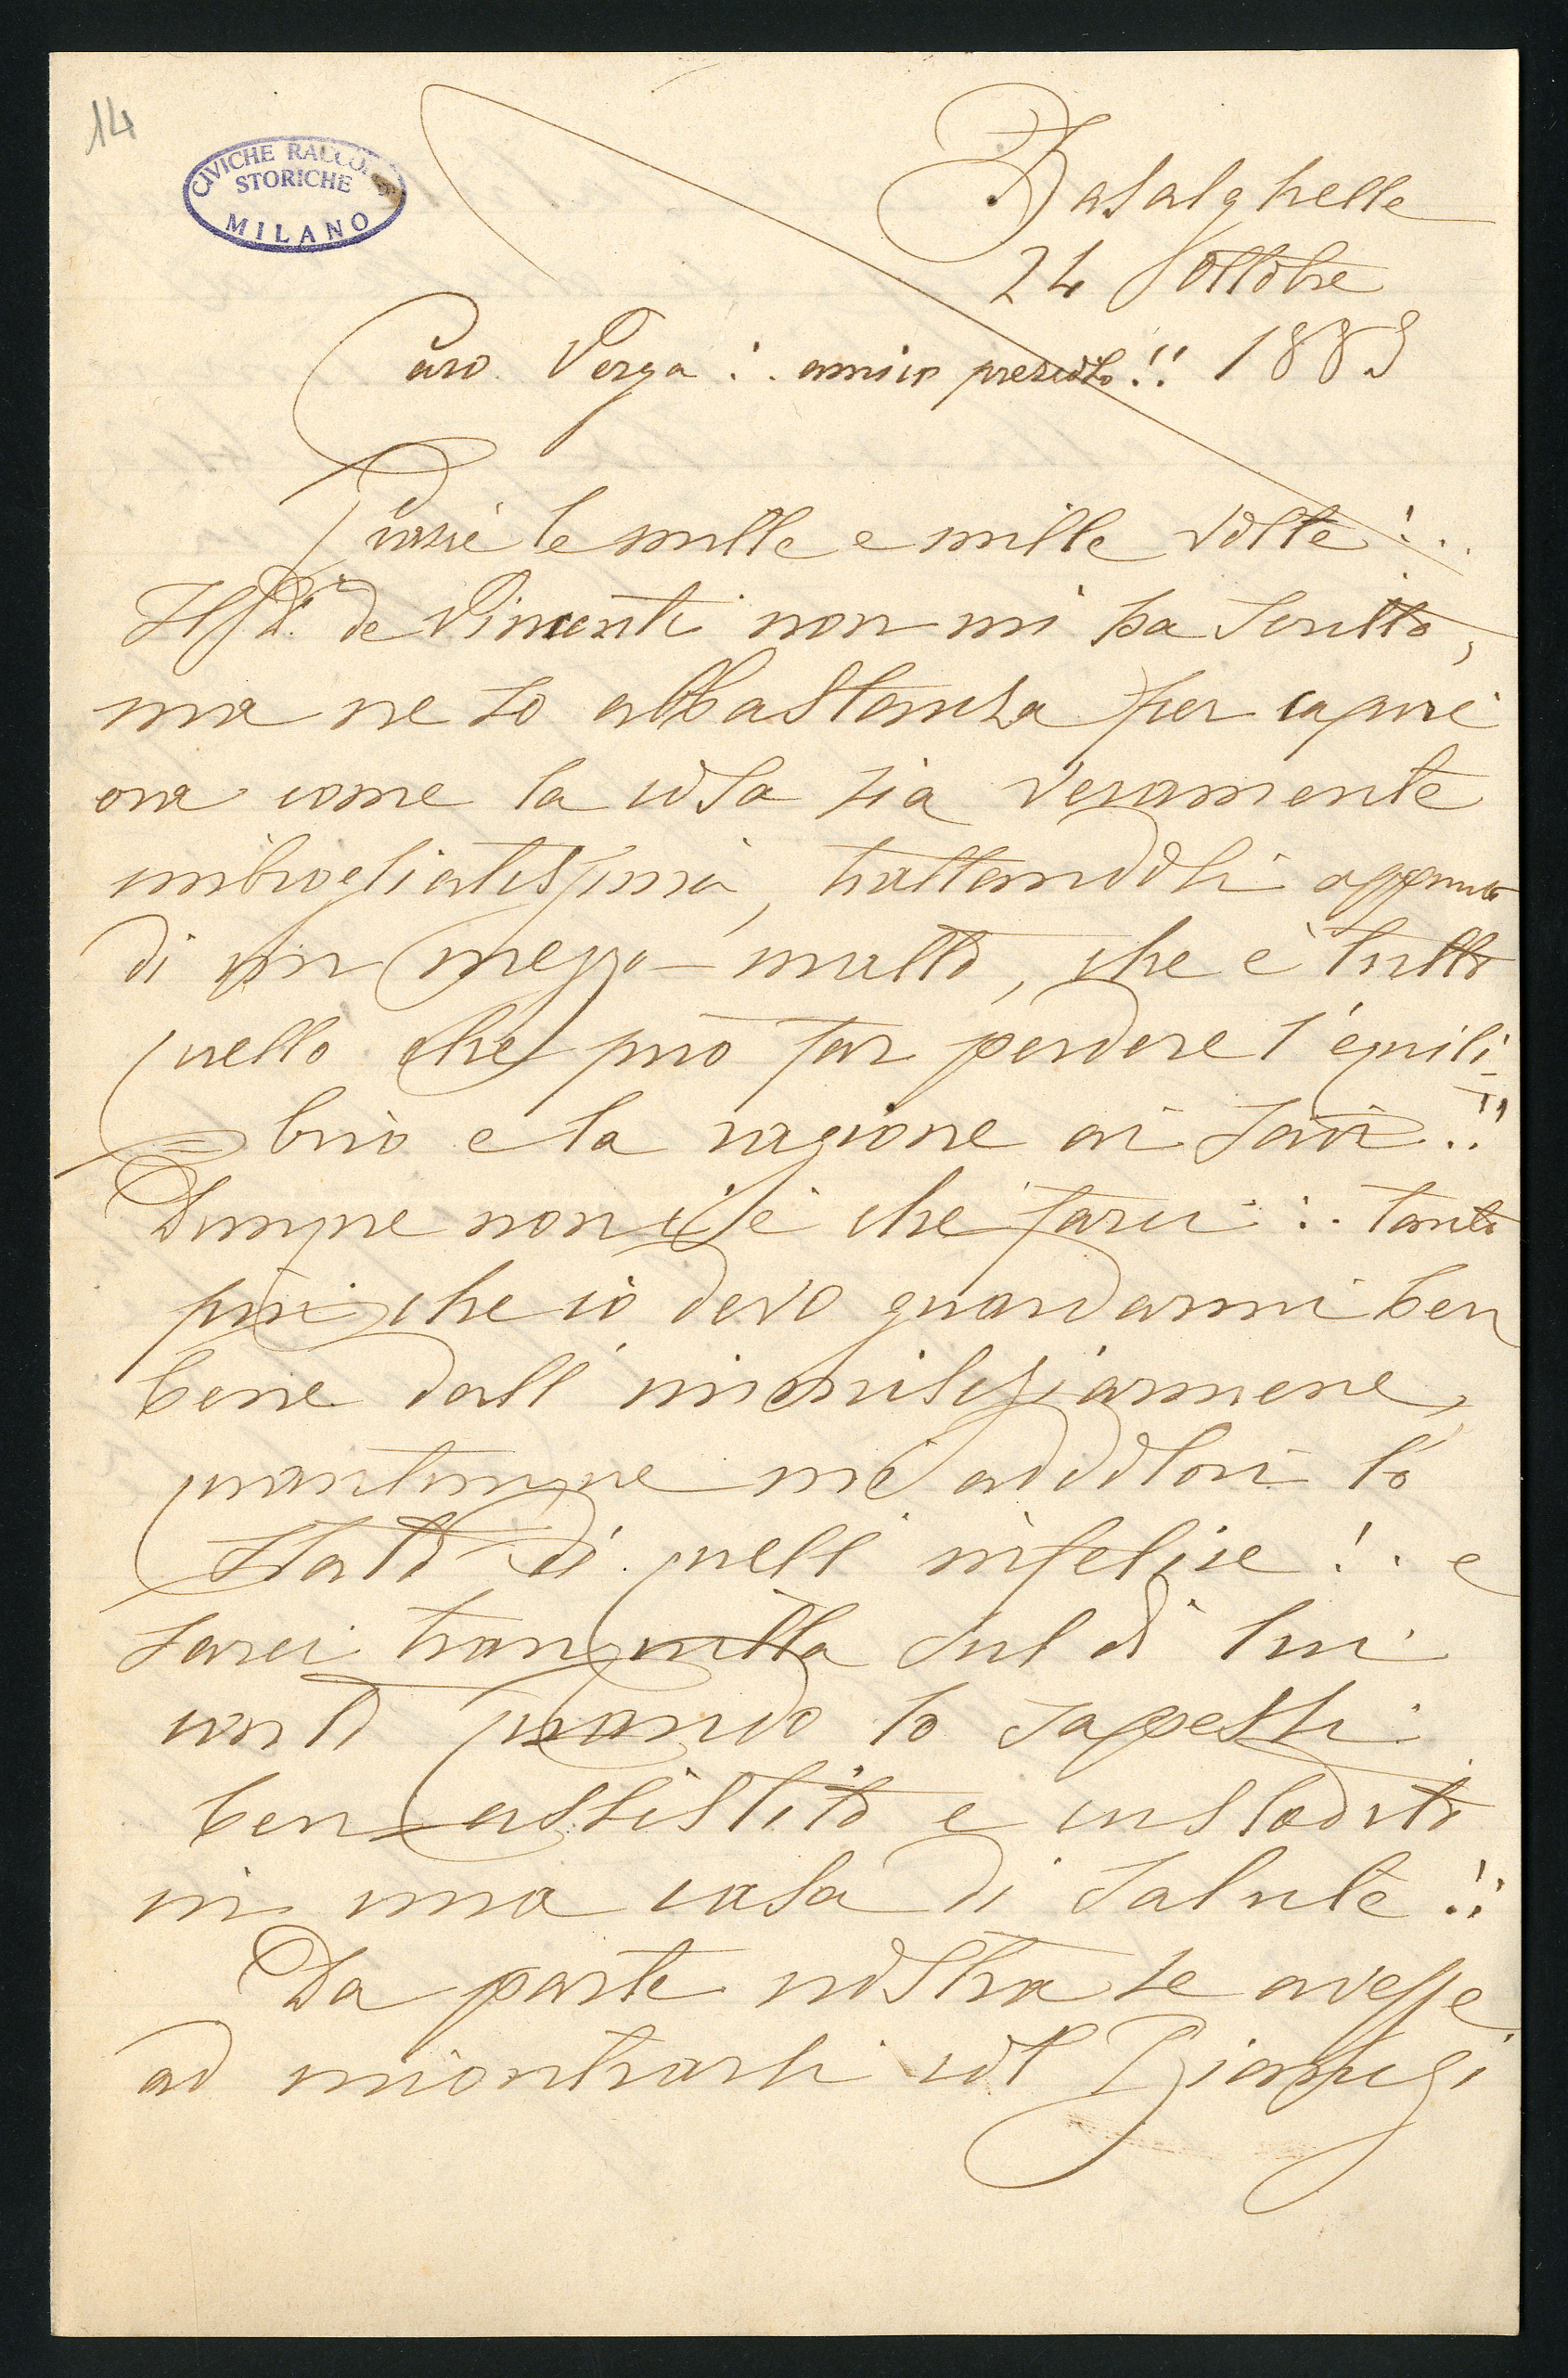 14
CIVICHE RACCOLTE
STORICHE
MILANO
Basalghelle
24 ottobre
Caro Verga :. amico prezioso!! 1889
Grazie le mille e mille volte!..
Il de Vincenti non mi ha scritto,
ma ne so abbastanza per capire
ora come la cosa sia veramente
imbrogliatissima, trattandosi appunto
di un mezzo-matto, che è tutto
quello che può far perdere l'equili-
brio e la ragione ai savi!!
Dunque non c'è che farci :. tanto
più che io devo guardarmi ben
bene dall'immischiarmene,
quantunque mi addolori lo
stato di quell'infelice!.. e
sarei tranquilla sul di lui
conto quando lo sapessi
ben assistito e custodito
in una casa di salute!!
Da parte nostra se avesse
ad incontrarsi col